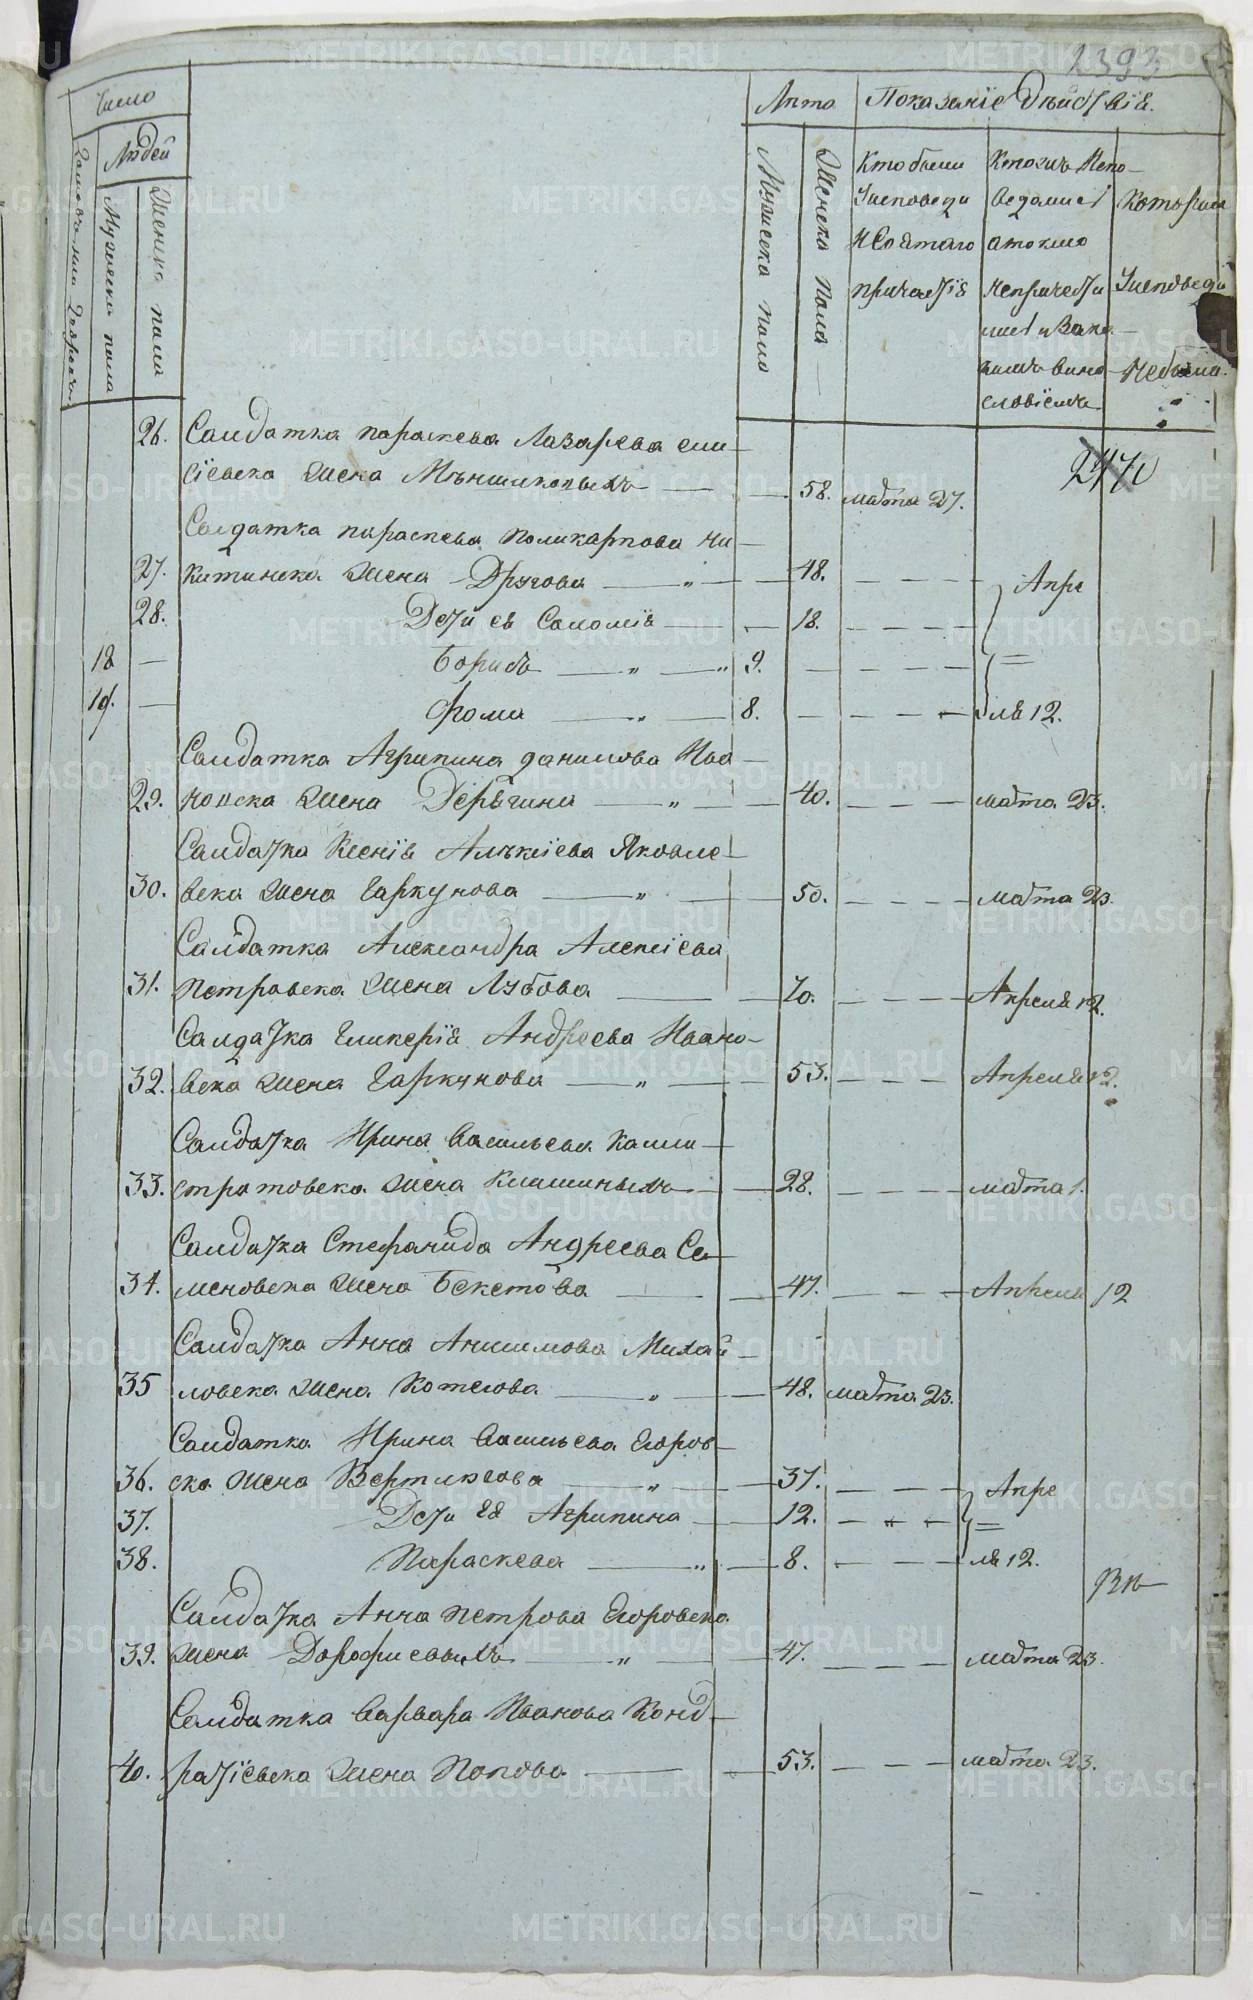 2393
Число
Лѣта
Показанїе Дѣйствїя.
Людей
Дворовъ
Мужеска пола
Женска пола
Мужеска пола
Женска пола
Кто были
Исповеди
и Святаго
причастїя
Кто жъ Испо-
ведались
а токмо
непричасти
лись и Зако
Вино
словїемъ
Которыя
Исповеди
Небыли.
2470
26. Салдатка параскева Лазарева ели-
сїевска жена Мѣншиковыхъ 58. марта 27.
Салдатка параскева поликарпова Ни-
27. китинска жена Другова 48. Апре
28. Дети ея Соломїя 18.
18 — Борисъ 9. =
19. — Фома 8. ля 12.
Салдатка Агрипина данилова Ива-
29. новска жена Дерягина 40. марта 23.
Салдатка Ксенїя Алѣксїева Яковле-
30. вска жена Гаркунова 50. марта 23.
Салдатка Александра Алексїева
31. петровска жена Лубова 70. Апреля 12.
Салдатка Гликерїя Андреева Ивано-
32. вска жена Гаркунова 53. Апреля 12.
Салдатка Ирина Васильева Кали-
33. стратовска жена Клишиныхъ 28. марта 1.
Салдатка Стефанида Андреева Се-
34. меновска жена Бекетова 47. Апреля 12
Салдатка Анна Анисимова Михай-
35 ловска жена Котегова 48. марта 23.
Салдатка Ирина Васильева Егоров-
36. ска жена Вертлюгова 37. Апре
37. Дети ея Агрипина 12. =
38. Параскева 8. ля 12.
Салдатка Анна петрова Егоровска
39. жена Дорофиевыхъ 47. марта 23.
Салдатка Варвара Иванова Конд-
40. ратїевска жена Попова 53. марта 23.
METRIKI.GASO-URAL.RU